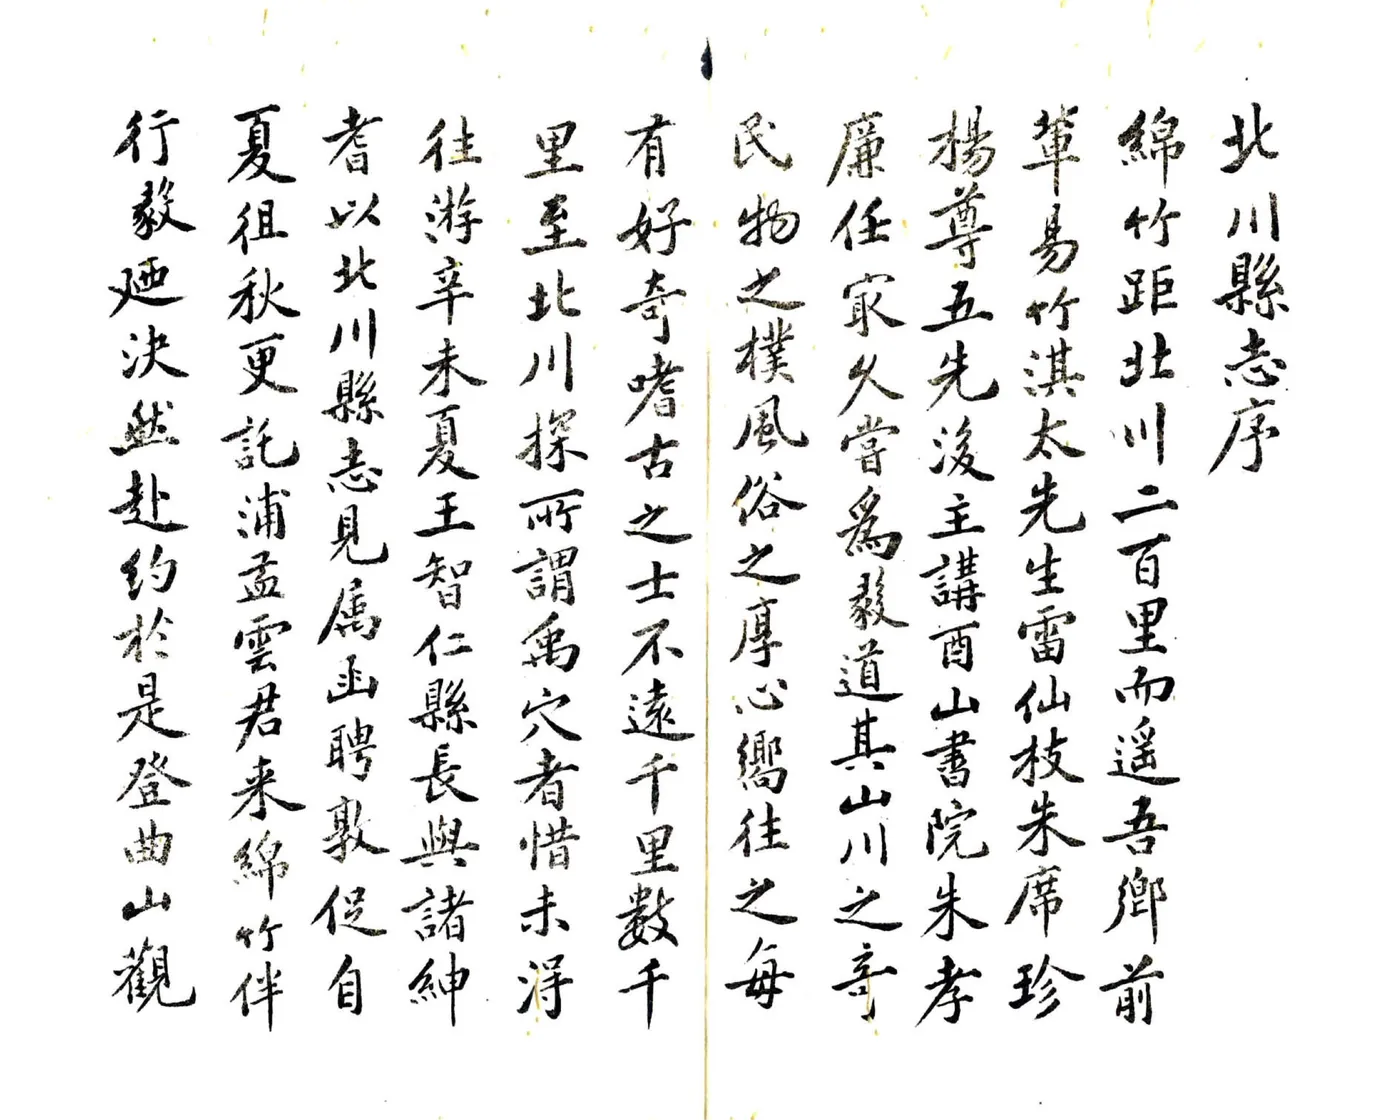 北川縣志序
綿竹距北川二百里而遥吾鄉前
輩易竹淇太先生雷仙枝朱席珍
楊尊五先後主講酉山書院朱孝
廉任冣久嘗爲毅道其山川之奇
民物之樸風俗之厚心嚮往之每
有好奇嗜古之士不遠千里數千
里至北川探所謂禹穴者惜未淂
往游辛未夏王智仁縣長與諸紳
耆以北川縣志見属函聘敦促自
夏徂秋更託浦孟雲君来綿竹伴
行毅廼決然赴约於是登曲山觀